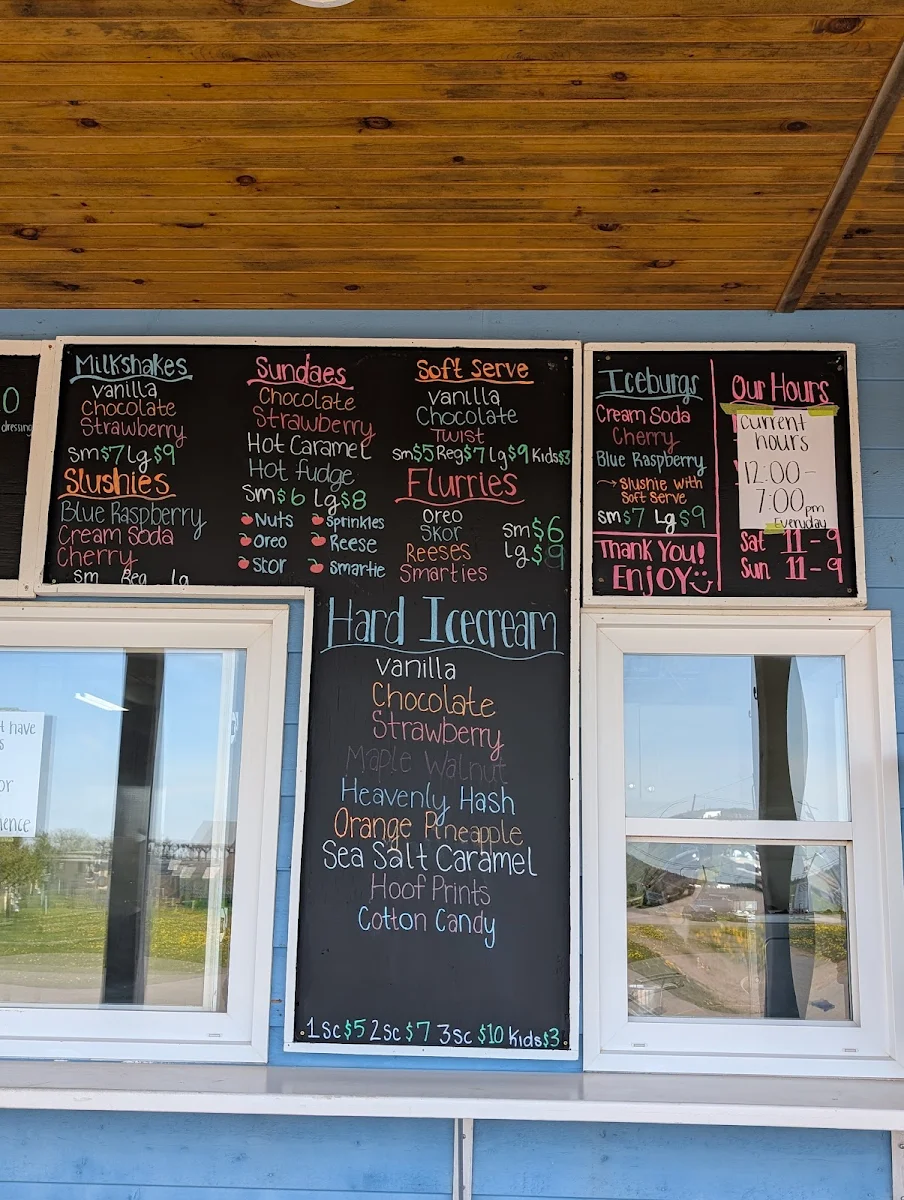 0
dressing
Milkshakes
Vanilla
Chocolate
Strawberry
Sm $7 Lg $9
Slushies
Blue Raspberry
Cream Soda
Cherry
Sm Reg Lg
Sundaes
Chocolate
Strawberry
Hot Caramel
Hot fudge
Sm $6 Lg $8
Nuts
Sprinkles
Oreo
Reese
Skor
Smartie
Soft Serve
Vanilla
Chocolate
Twist
Sm $5 Reg $7 Lg $9 Kids $3
Flurries
Oreo
Skor
Reeses
Smarties
Sm $6
Lg $9
Hard Icecream
Vanilla
Chocolate
Strawberry
Maple Walnut
Heavenly Hash
Orange Pineapple
Sea Salt Caramel
Hoof Prints
Cotton Candy
1sc $5 2sc $7 3sc $10 Kids $3
Iceburgs
Cream Soda
Cherry
Blue Raspberry
→ Slushie with
Soft Serve
Sm $7 Lg $9
Thank You!
Enjoy
Our Hours
Current
hours
12:00-
7:00pm
Everyday
Sat 11-9
Sun 11-9
t have
s
or
ience